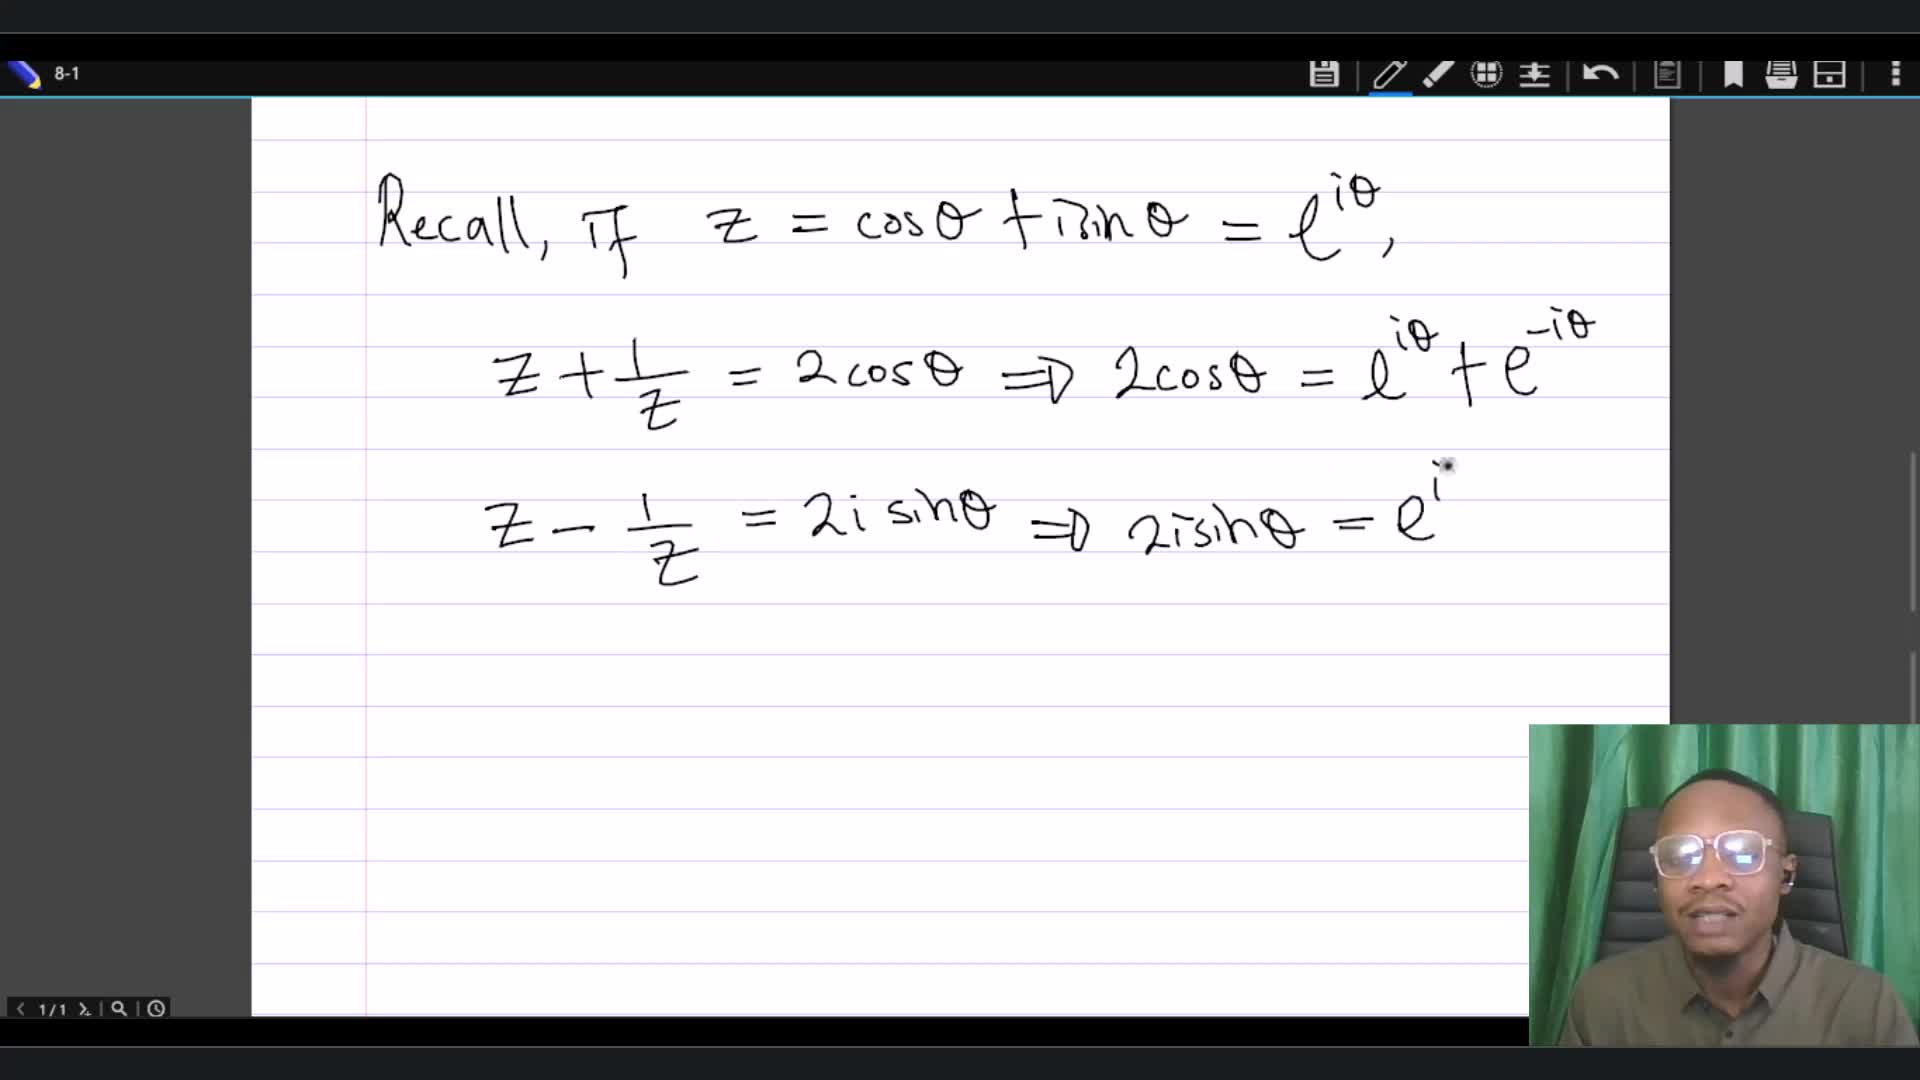 8-1
Recall, if z = cosθ + isinθ = e^{iθ},
z + 1/z = 2cosθ ⇒ 2cosθ = e^{iθ} + e^{-iθ}
z - 1/z = 2i sinθ ⇒ 2isinθ = e^{i
1/1